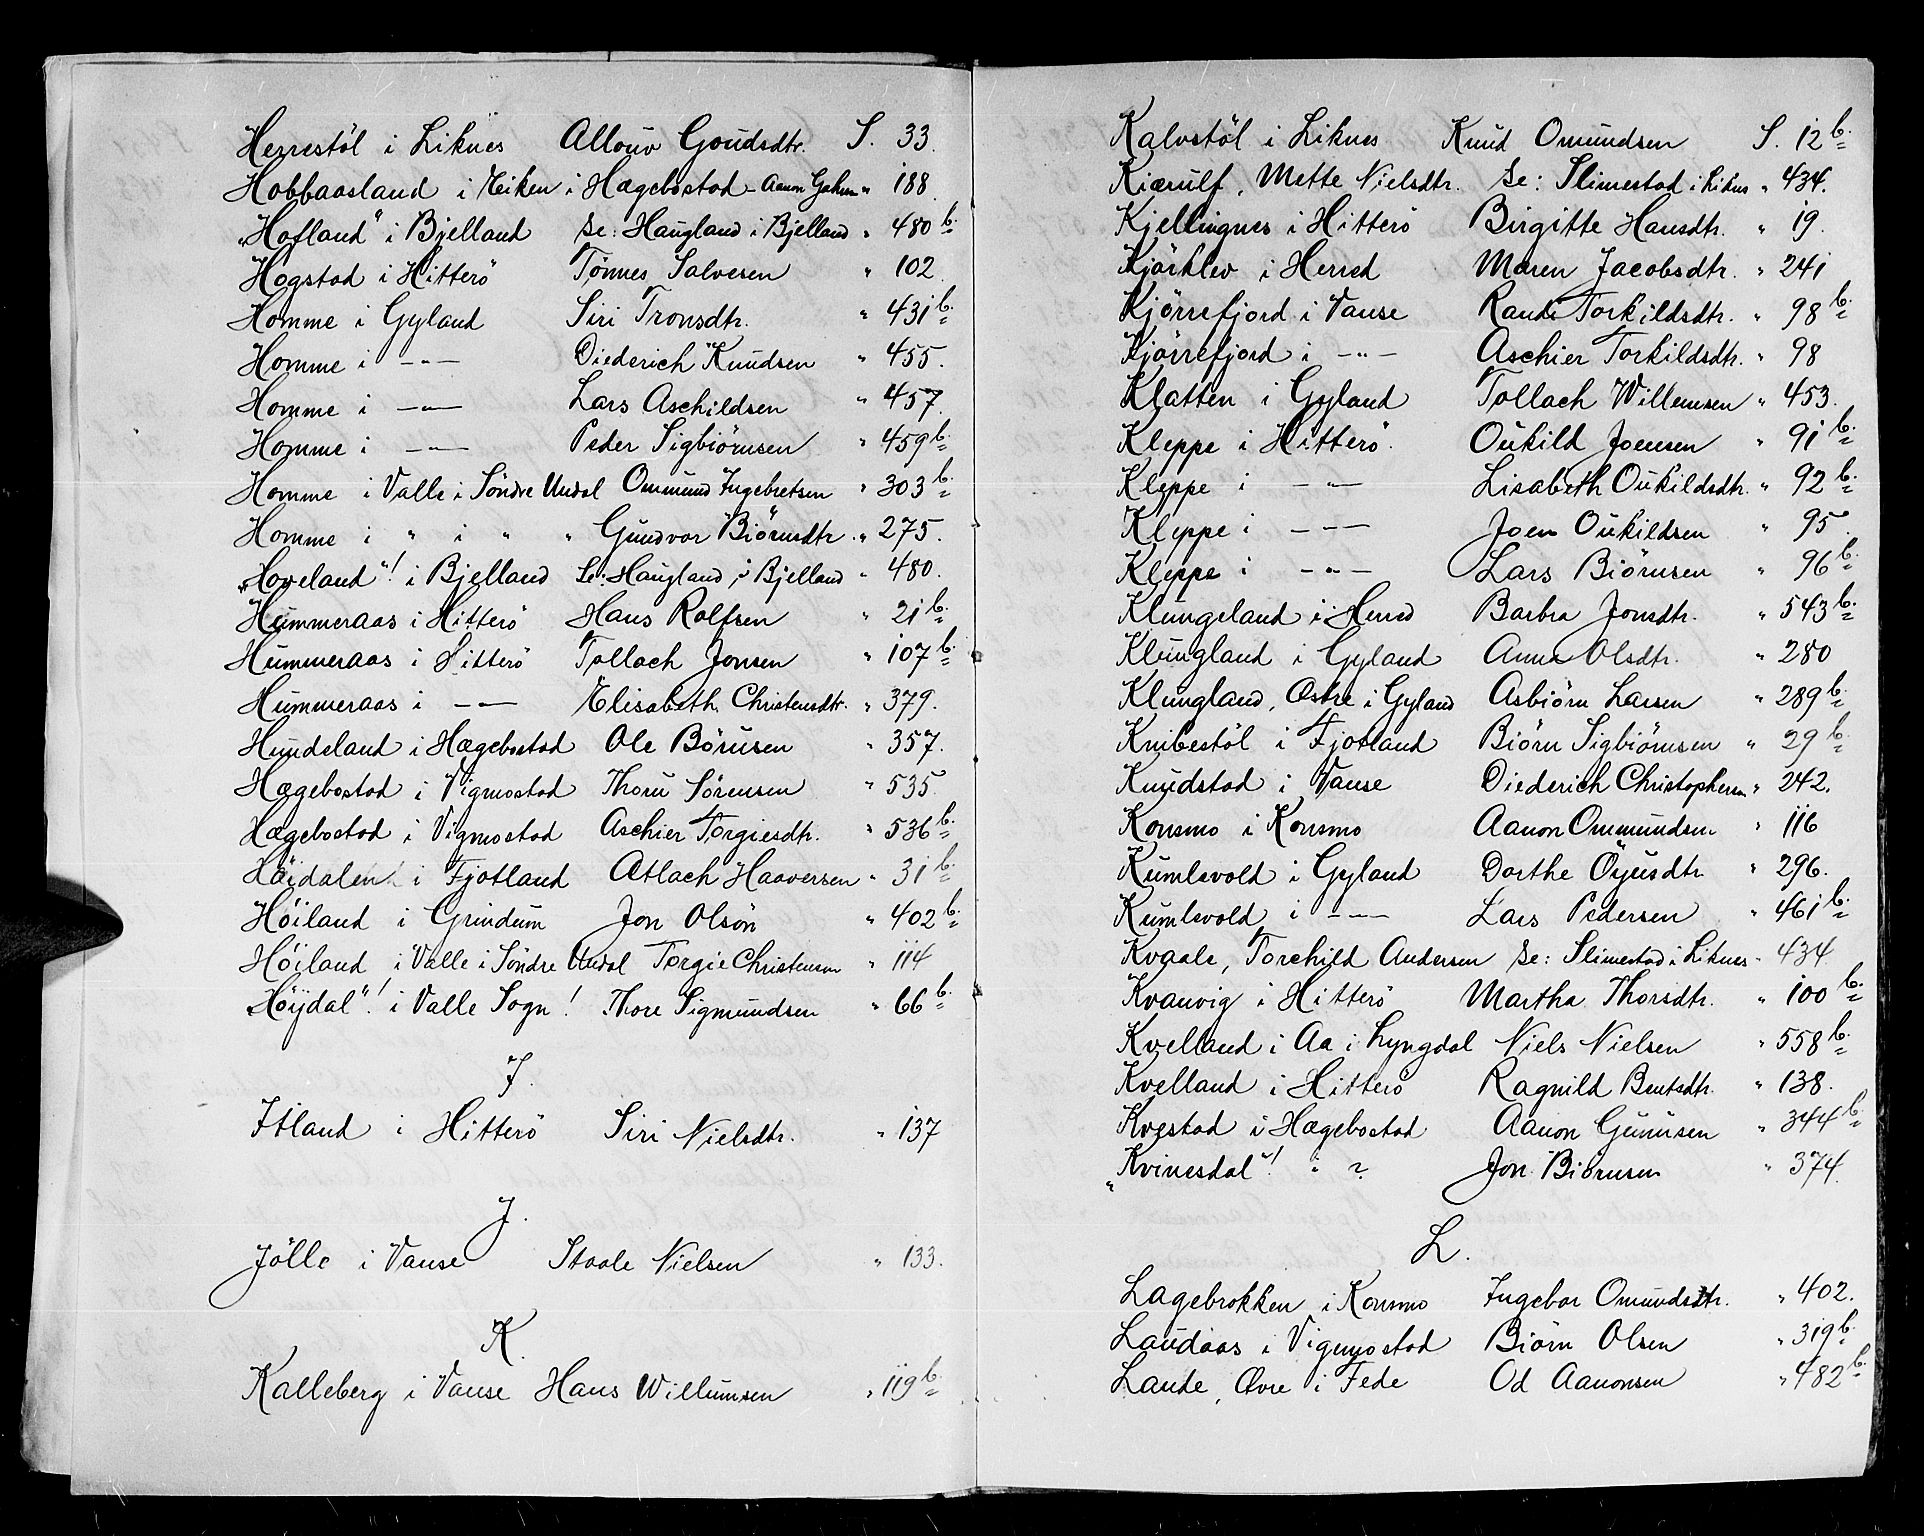 Herrestöl i Liknes Allouv Goudsdtr. S. 33.
Hobbaasland i Eiken i Hægebostad - Aanon " 188.
"Hofland" i Bjelland Se: Haugland i Bjelland " 480 b.
Hogstad i Hitterö Tönnes Salvesen " 102.
Homme i Gyland Siri Tronsdtr. " 431 b.
Homme i -"- Diederich Knudsen " 455.
Homme i -"- Lars Aschildsen " 457.
Homme i -"- Peder Sigbiörnsen " 459 b.
Homme i Valle i Söndre Undal Ommund Ingebretsen " 303 b.
Homme i " i " " Gundvor Biörnsdtr. " 275.
"Hoveland"! i Bjelland Se: Haugland i Bjelland " 480.
Hummeraas i Hitterö Hans Rolfsen " 21 b.
Hummeraas i Hitterö Tollach Jonsen " 107 b.
Hummeraas i -"- Elisabeth Christensdtr. " 379.
Hundeland i Hægebostad Ole Börusen " 357.
Hægebostad i Vigmostad Thoru Sörensen " 535.
Hægebostad i Vigmostad Aschier Torgiesdtr. " 536 b.
Höidalen i Fjotland Atlach Haaversen " 31 b.
Höiland i Grindum Jon Olsön " 402 b.
Höiland i Valle i Söndre Undal Torgie Christensen " 114
"Höijdal"! i Valle Sogn! Thore Sigmundsen " 66 b.
I.
Itland i Hitterö Siri Nielsdtr. " 137
J.
Jölle i Vanse Staale Nielsen " 133.
K.
Kalleberg i Vanse Hans Willumsen " 119 b.
Kalvstöl i Liknes Knud Omundsen S. 12 b.
Kiærulf, Mette Nielsdtr. Se: Slimestad i Liknes " 434.
Kjellingnes i Hitterö Birgitte Hansdtr. " 19.
Kjörklev i Herred Maren Jacobsdtr. " 241
Kjörrefjord i Vanse Randi Torkildsdtr. " 98 b.
Kjörrefjord i -"- Aschier Torkildsdtr. " 98
Klatten i Gyland Tollach Willemsen " 453.
Kleppe i Hitterö Oukild Joensen " 91 b.
Kleppe i -"- Lisabeth Oukildsdtr. " 92 b.
Kleppe i -"- Joen Oukildsen " 95.
Kleppe i -"- Lars Biörnsen " 96 b.
Klungeland i Herred Barbra Jonsdtr. " 543 b.
Klungland i Gyland Anna Olsdtr. " 280
Klungland, Østre i Gyland Asbiörn Larsen " 289 b.
Knibestöl i Fjotland Biörn Sigbiörnsen " 29 b.
Knudstad i Vanse Diederich Christophersen " 242.
Konsmo i Konsmo Aanon Ommundsen " 116
Kumlevold i Gyland Dorthe Öyusdtr " 296.
Kumlevold i -"- Lars Pedersen " 461 b.
Kvaale, Torchild Andersen Se: Slimestad i Liknes " 434
Kvanvig i Hitterö Martha Thorsdtr. " 100 b.
Kvelland i Aa i Lyngdal Niels Nielsen " 558 b.
Kvelland i Hitterö Ragnild Bentsdtr. " 138.
Kvestad i Hægebostad Aanon Gunnisen " 344 b.
"Kvinesdal"! i ? Jon Biörnsen " 374.
L.
Lagebrokken i Konsmo Ingebor Omundsdtr. " 402.
Laudaas i Vigmostad Biörn Olsen " 319 b.
Laude, Øvre i Fede Od Aanonsen " 482 b.